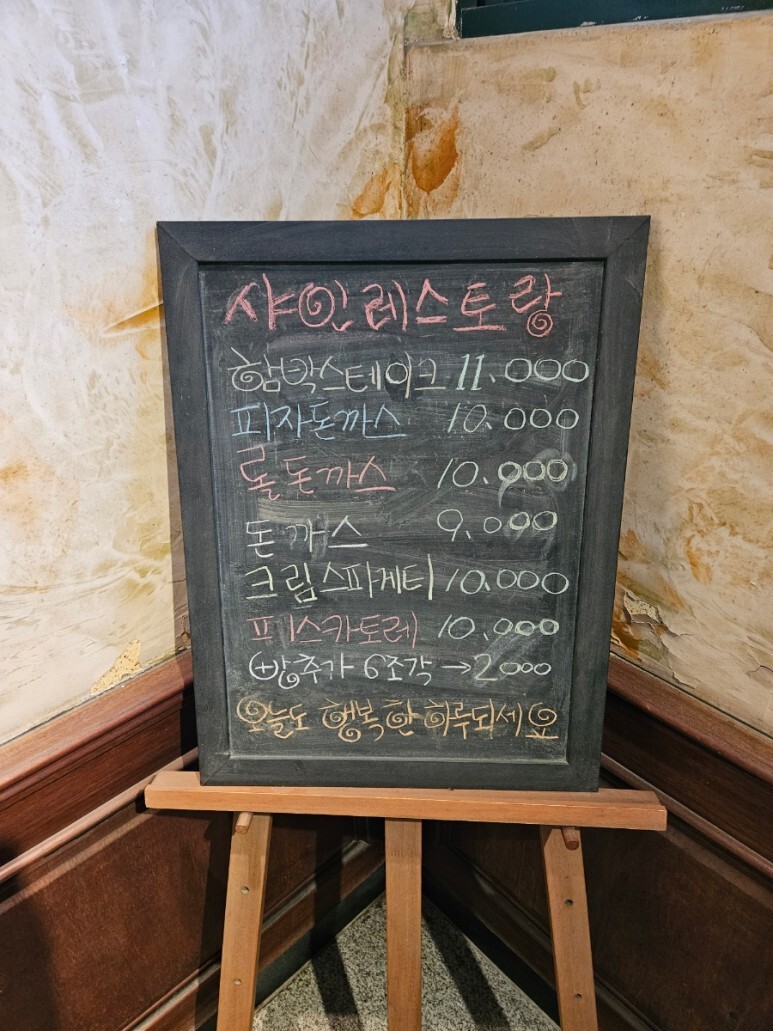 샤인레스토랑
함박스테이크 11.000
피자돈까스 10.000
롤돈까스 10.000
돈까스 9.000
크림스파게티 10.000
피스카토레 10.000
빵추가 6조각 → 2000
오늘도 행복한 하루되세요